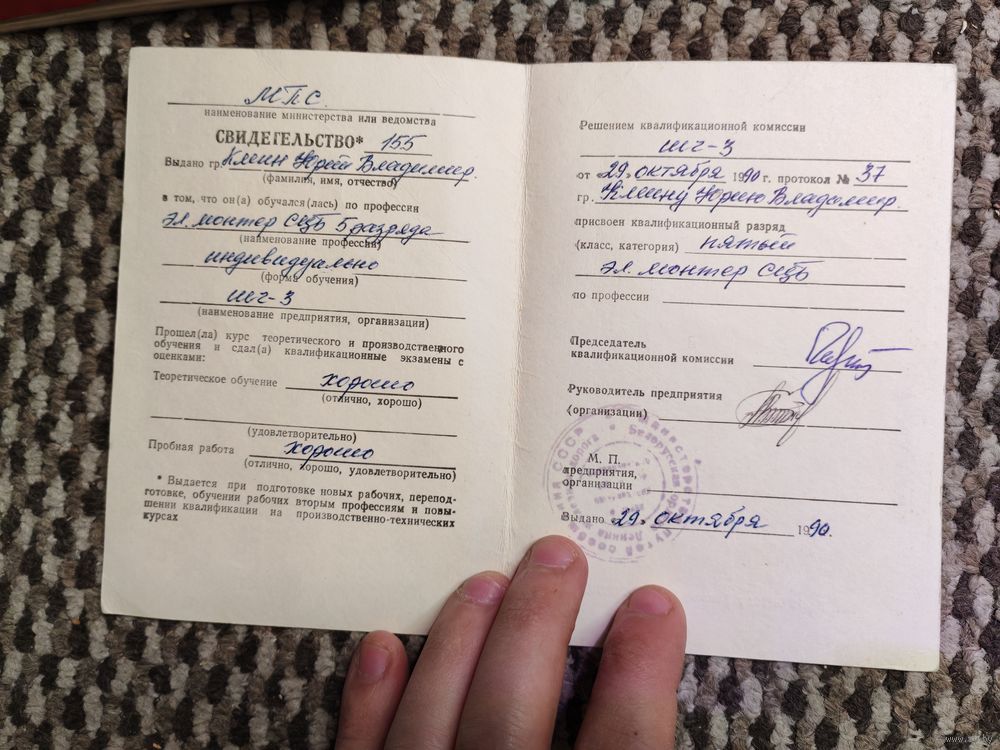 МПС.
наименование министерства или ведомства
СВИДЕТЕЛЬСТВО* 155
Выдано гр. Клиин Юрий Владимир.
(фамилия, имя, отчество)
в том, что он(а) обучался(лась) по профессии
эл. монтер СЦБ 5 разряда
(наименование профессии)
индивидуально
(форма обучения)
шг-3
(наименование предприятия, организации)
Прошел(ла) курс теоретического и производственного
обучения и сдал(а) квалификационные экзамены с
оценками:
Теоретическое обучение хорошо
(отлично, хорошо)
(удовлетворительно)
Пробная работа хорошо
(отлично, хорошо, удовлетворительно)
* Выдается при подготовке новых рабочих, перепод-
готовке, обучении рабочих вторым профессиям и повы-
шении квалификации из производственно-технических
курсах
Решением квалификационной комиссии
шг-3
от «29» октября 1990 г. протокол № 37
гр. Клиину Юрию Владимир.
присвоен квалификационный разряд
(класс, категория) пятый
эл. монтер СЦБ
по профессии
Председатель
квалификационной комиссии
Руководитель предприятия
(организации)
М. П.
предприятия,
организации
Выдано «29» октября 1990.